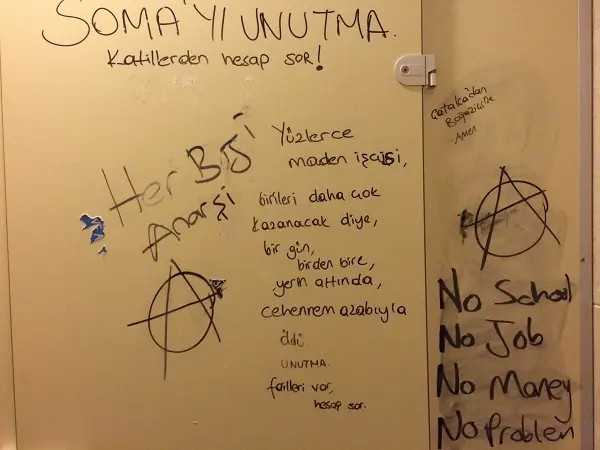 SOMA'YI UNUTMA.
Katillerden hesap SOR!
Her BİJİ
Anarşi
Yüzlerce
maden işçisi,
birileri daha çok
kazanacak diye,
bir gün,
birden bire,
yerin altında,
cehennem azabıyla
öldü
UNUTMA.
failleri var,
hesap sor.
Çatalca'dan
Boğaziçine
Amen
No School
No Job
No Money
No Problem